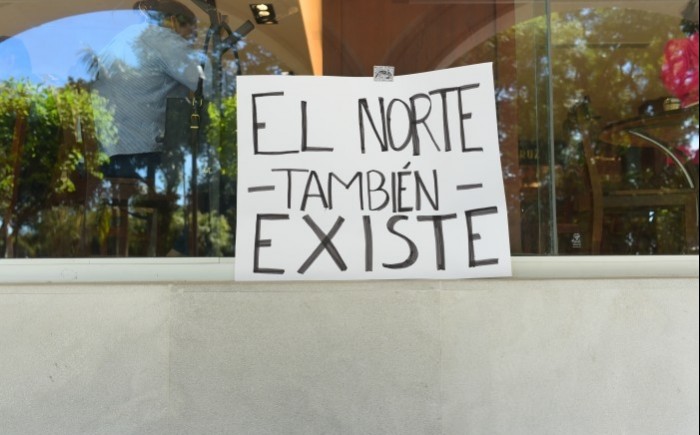 EL NORTE
– TAMBIÉN –
EXISTE